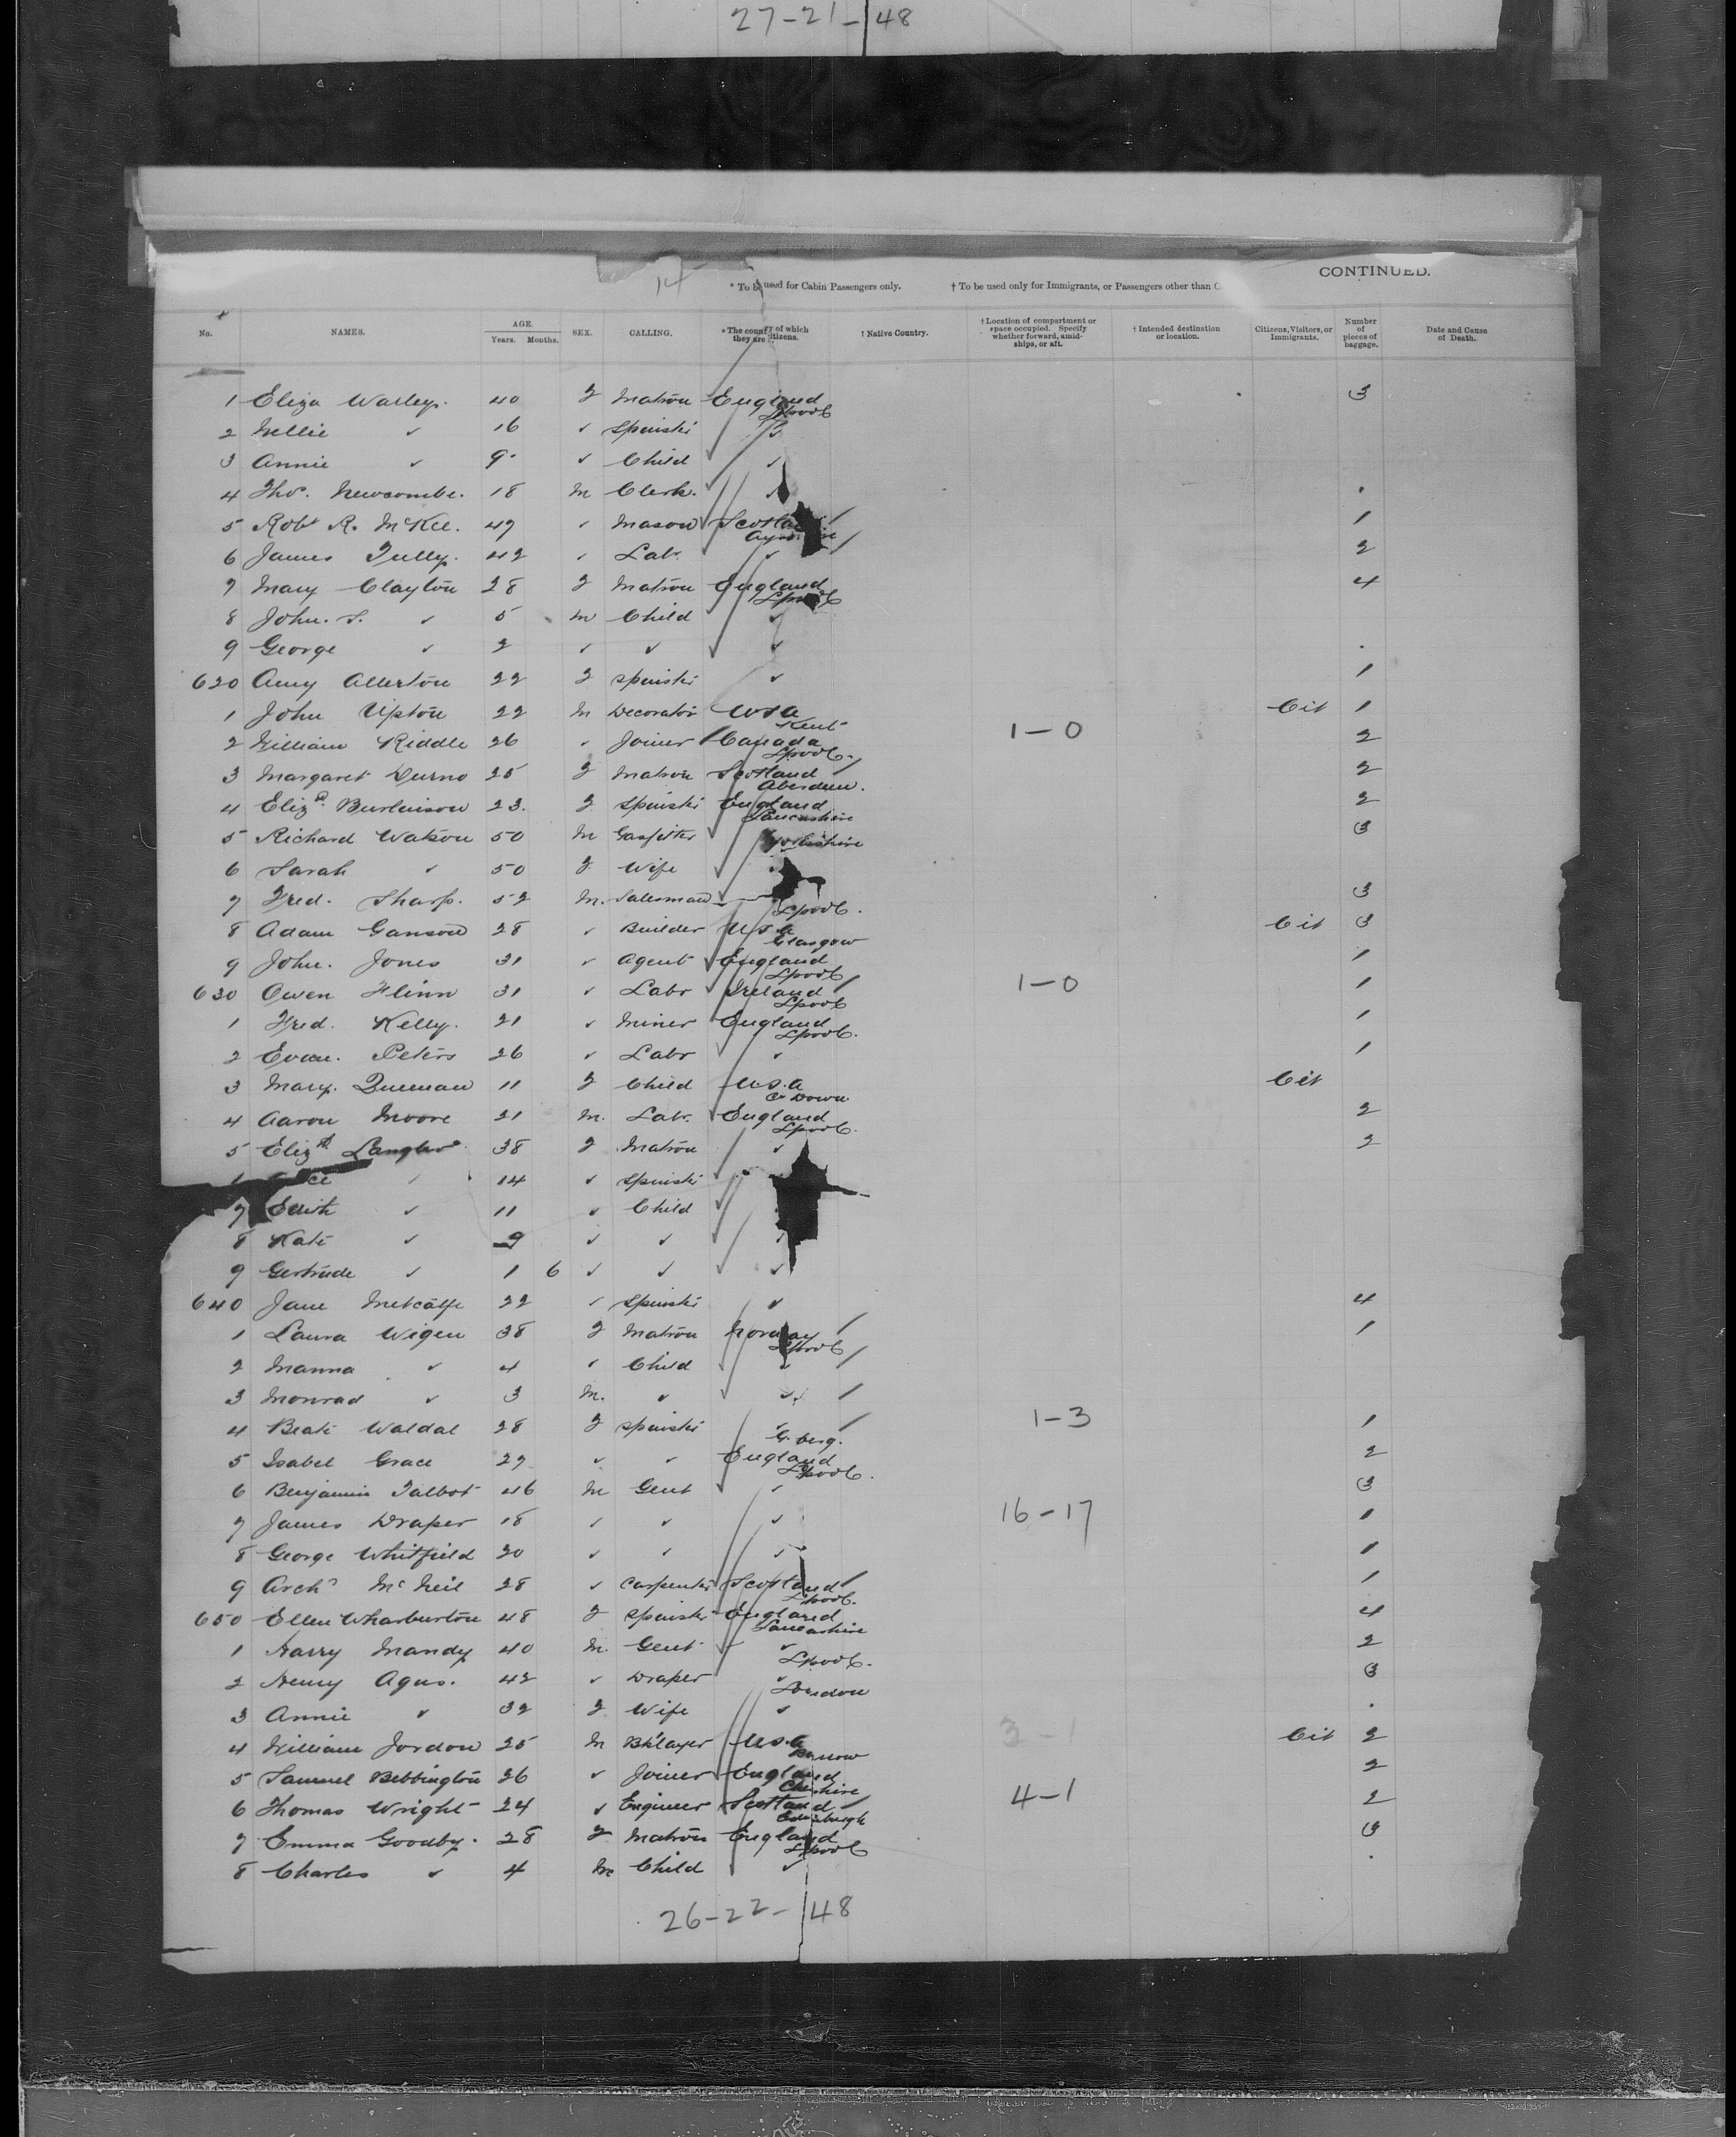 27-21-48
CONTINUED.
14
* To be used for Cabin Passengers only. † To be used only for Immigrants, or Passengers other than C
No. NAMES. AGE. Years. Months. SEX. CALLING. * The country of which they are citizens. † Native Country. † Location of compartment or space occupied. Specify whether forward, amidships, or aft. † Intended destination or location. Citizens, Visitors, or Immigrants. Number of pieces of baggage. Date and Cause of Death.
1 Eliza 40 F Matron England Lpool 3
2 Nellie ✓ 16 ✓ Spinstr
3 Annie ✓ 9 ✓ Child ✓
4 Thos. Newcombe. 18 M Clerk.
5 Robt R. McKee. 47 ✓ Mason 1
6 James Tully. 42 ✓ Labr. ✓ 2
7 Mary Clayton 28 F Matron England Lpool 4
8 John. S. ✓ 5 M Child ✓
9 George ✓ 2 ✓ ✓ ✓
620 Amy Allerton 22 F Spinstr ✓ 1
1 John Upton 22 M Decorator USA Kent Cit 1
2 William Riddle 26 ✓ Joiner Canada Lpool. 1-0 2
3 Margaret Durno 25 F Matron Scotland Aberdeen. 2
4 Elizh Burlinson 23. F Spinstr England Lancashire 2
5 Richard Watson 50 M Gasfitter Yorkshire 3
6 Sarah ✓ 50 F Wife
7 Fred. Sharp. 52 M. Salesman Lpool. 3
8 Adam Ganson 28 ✓ Builder USA Glasgow Cit 3
9 John. Jones 31 ✓ Agent England Lpool 1
630 Owen Flinn 31 ✓ Labr Ireland Lpool 1-0 1
1 Fred. Kelly. 21 ✓ Miner England Lpool. 1
2 Evan. Peters 26 ✓ Labr ✓ 1
3 Mary. 11 F Child USA Co Down. Cit
4 Aaron Moore 21 M. Labr. England Lpool. 2
5 Elizth 38 F Matron ✓ 2
14 ✓ Spinstr
7 Edith ✓ 11 ✓ Child
8 Kate ✓ 9 ✓ ✓
9 Gertrude ✓ 1 6 ✓ ✓ ✓
640 Jane Metcalfe 22 ✓ Spinstr ✓ 4
1 Laura Wigen 38 F Matron Norway Lpool 1
2 Manna ✓ 4 ✓ Child
3 Monrad ✓ 3 M. ✓ ✓
4 Beate Waldal 28 F Spinstr ✓ G. berg. 1-3 1
5 Isabel Grace 27 ✓ ✓ England Lpool. 2
6 Benjamin Talbot 46 M Gent ✓ 3
7 James Draper 18 ✓ ✓ ✓ 16-17 1
8 George Whitfield 20 ✓ ✓ ✓ 1
9 Archd McNeil 28 ✓ Carpenter Scotland Lpool. 1
650 Ellen Wharburton 48 F Spinstr England Lancashire 4
1 Harry Mandy 40 M. Gent ✓ Lpool. 2
2 Henry Agus. 42 ✓ Draper ✓ London 3
3 Annie ✓ 32 F Wife ✓
4 William Jordon 25 M Bklayer USA Barrow 3-1 Cit 2
5 Samuel Bebbington 26 ✓ Joiner England Cheshire 2
6 Thomas Wright 24 ✓ Engineer Scotland Edinburgh 4-1 2
7 Emma Goodby. 28 F Matron England Lpool 3
8 Charles ✓ 4 M Child ✓
26-22-48